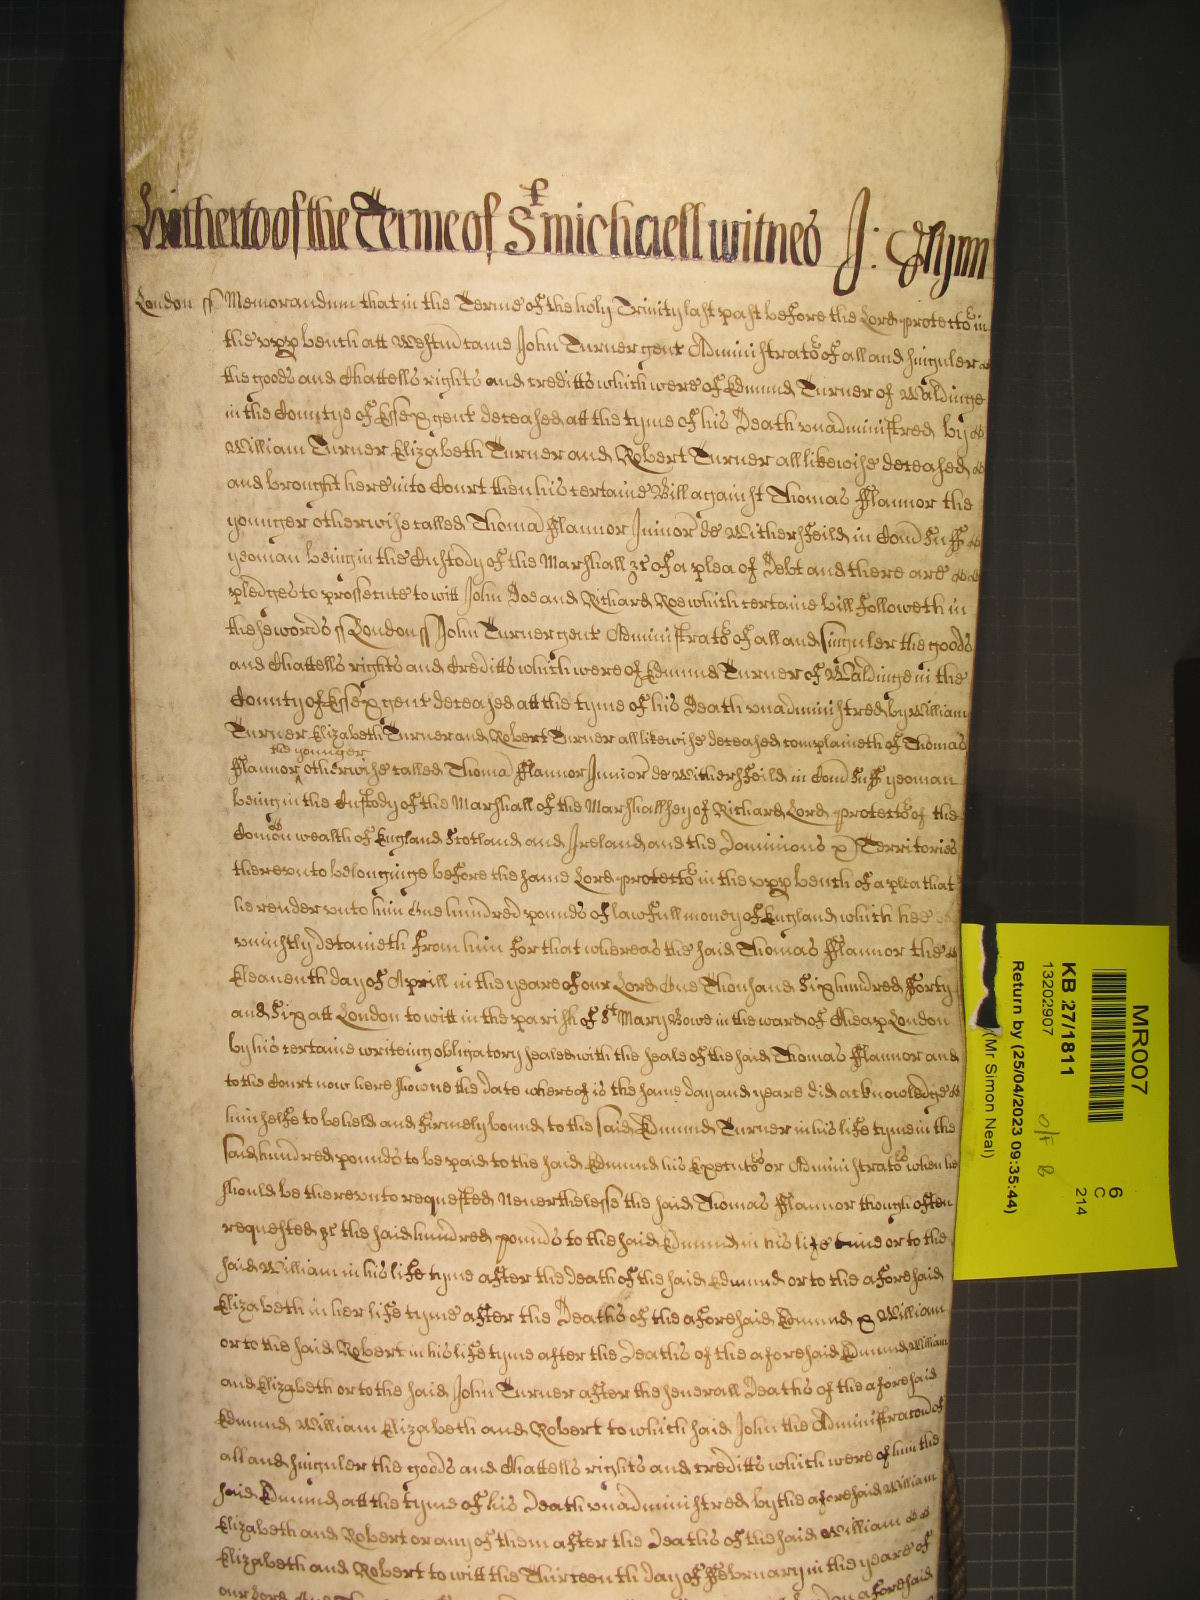 Hitherto of the Terme of St michaell witnes J: Glynn
London ss Memorandum that in the Terme of the holy Trinity last past before the Lord protector in
the upp bench att Westm came John Turner gent Administrator of all and singuler
the goods and Chattells rights and creditts which were of Edmund Turner of Waldinge
in the Countye of Essex gent deceased att the tyme of his Death unadministred by
William Turner Elizabeth Turner and Robert Turner all likewise deceased
and brought here into Court then his certaine Bill against Thomas Flannor the
younger otherwise called Thoma Flannor Junior de Withersfeild in Com Suff
yeoman being in the Custody of the Marshall &c of a plea of Debt and there are
pledges to prossecute to witt John Doe and Richard Roe which certaine bill followeth in
these words ss London ss John Turner gent Administrator of all and singuler the goods
and Chattells rights and Creditts which were of Edmund Turner of Waldinge in the
County of Essex gent deceased att the tyme of his Death unadministred by William
Turner Elizabeth Turner and Robert Turner all likewise deceased complaineth of Thomas
the younger
Flannor otherwise called Thoma Flannor Junior de Withersfeild in Com Suff yeoman
being in the Custody of the Marshall of the Marshallsey of Richard Lord protector of the
Comon wealth of England Scotland and Ireland and the Dominions & Territories
thereunto belonginge before the same Lord protector in the upp bench of a plea that
he render unto him One hundred pounds of lawfull money of England which hee
uniustly detaineth from him for that whereas the said Thomas Flannor the
Eleaventh day of Aprill in the yeare of our Lord One Thousand Six hundred Forty
and Six att London to witt in the parish of St Mary Bowe in the ward of Cheap London
by his certaine writeing obligatory sealed with the seale of the said Thomas Flannor and
to the Court now here showne the date whereof is the same day and yeare did acknowledge
himselfe to be held and firmely bound to the said Edmund Turner in his life tyme in the
said hundred pounds to be paid to the said Edmund his Executors or Administrators when he
should be thereunto requested Neverthelesse the said Thomas Flannor though often
requested &c the said hundred pounds to the said Edmund in his life time or to the
said William in his life tyme after the death of the said Edmund or to the aforesaid
Elizabeth in her life tyme after the Deaths of the aforesaid Edmund & William
or to the said Robert in his life tyme after the Deaths of the aforesaid Edmund William
and Elizabeth or to the said John Turner after the severall Deaths of the aforesaid
Edmund William Elizabeth and Robert to which said John the Administracon of
all and singuler the goods and Chattells rights and creditts which were of him the
said Edmund att the tyme of his Death unadministred by the aforesaid William
Elizabeth and Robert or any of them after the Deaths of the said William
Elizabeth and Robert to witt the Thirteenth day of February in the yeare of
our Lord One aforesaid
MR007
6
C
214
KB 27/1811
13202907
o/f B
Return by (25/04/2023 09:35:44)
(Mr Simon Neal)